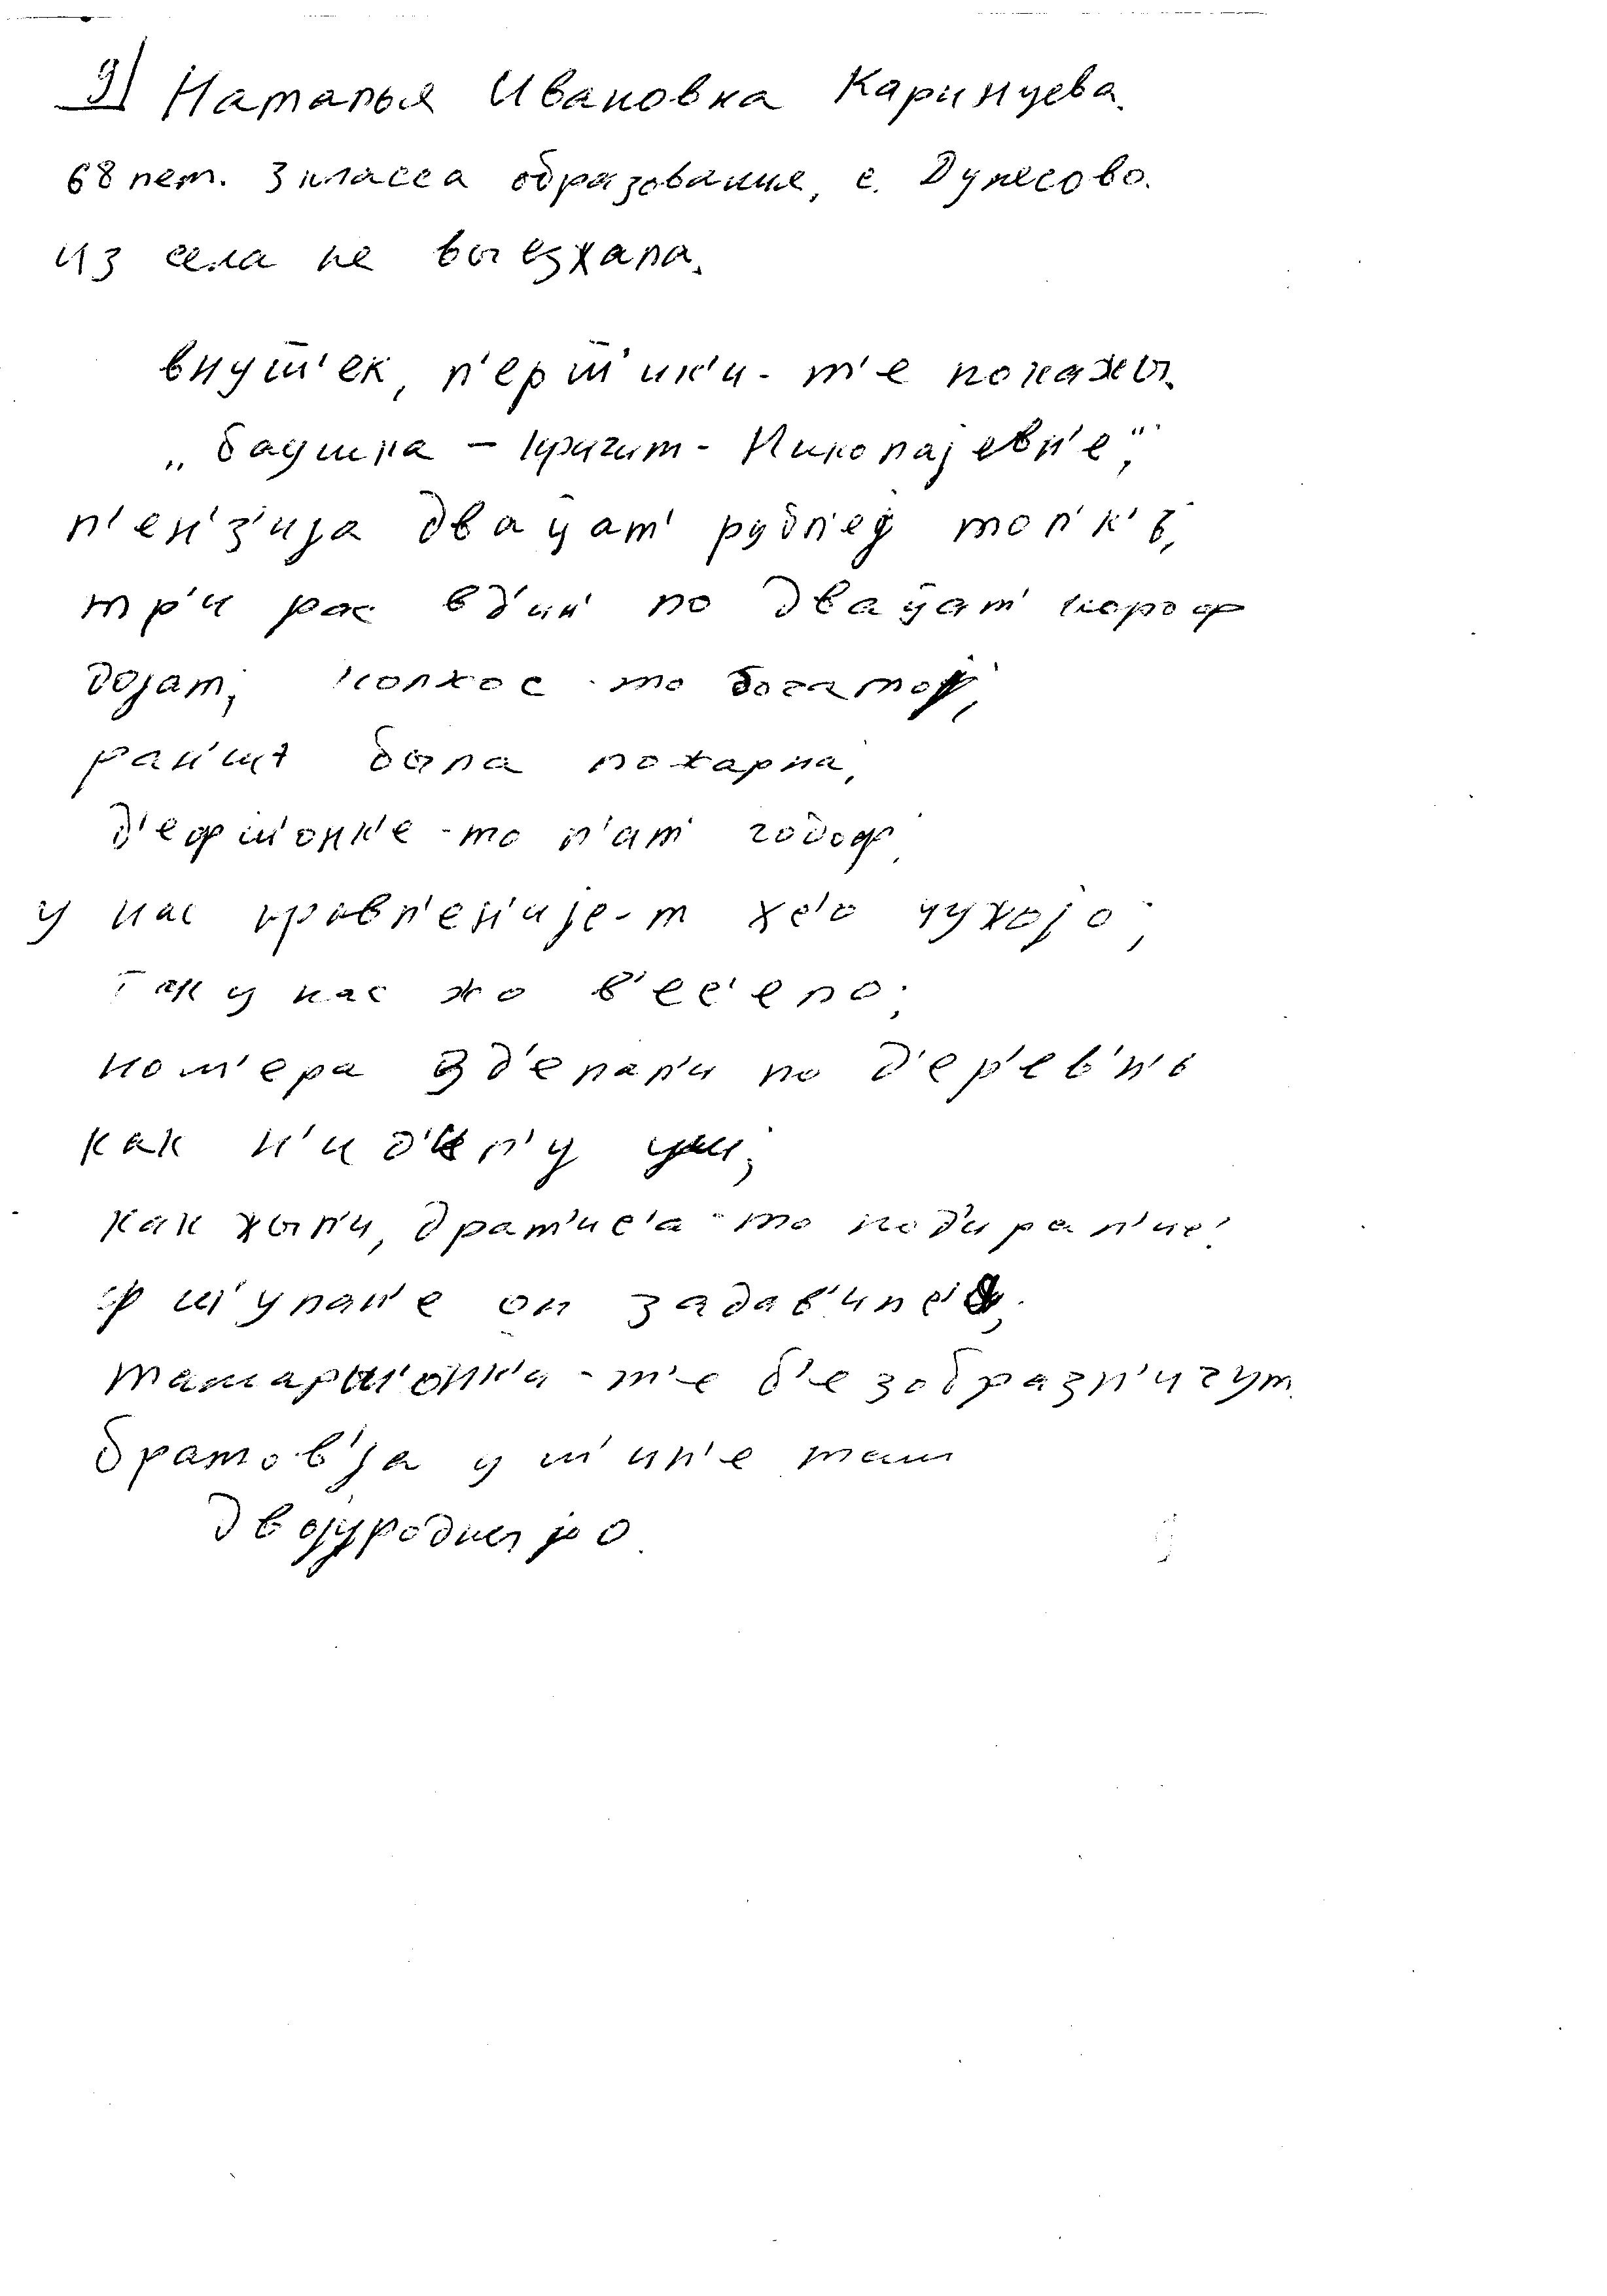 9) Наталья Ивановна Каринцева.
68 лет. 3 класса образование, с. Дулесово.
Из села не выезжала.
внут'ек, п'ерт'ик'и-т'е покажы.
„бацшка – кричит - Николајевн'е",
п'ен'з'ија двацат' рубл'еј тол'к'ь,
тр'и рас вд'ин' по двацат' короф
дојат, колхос-то богатој,
ран'шъ была пожарна,
д'ефш'онк'е-то п'ат' годоф,
у нас правл'ен'ије-т жо чужојо,
так у нас жо в'ес'ело,
ном'ера зд'елал'и по д'ер'евн'ь
как жыл'и, драт'ис'a-то подирал'ис'
ф ш'улан'е он задав'илс'о,
татарш'онк'и-т'е б'езобразн'ичут
братов'ја у ш'ин'е там
двојуродныјо